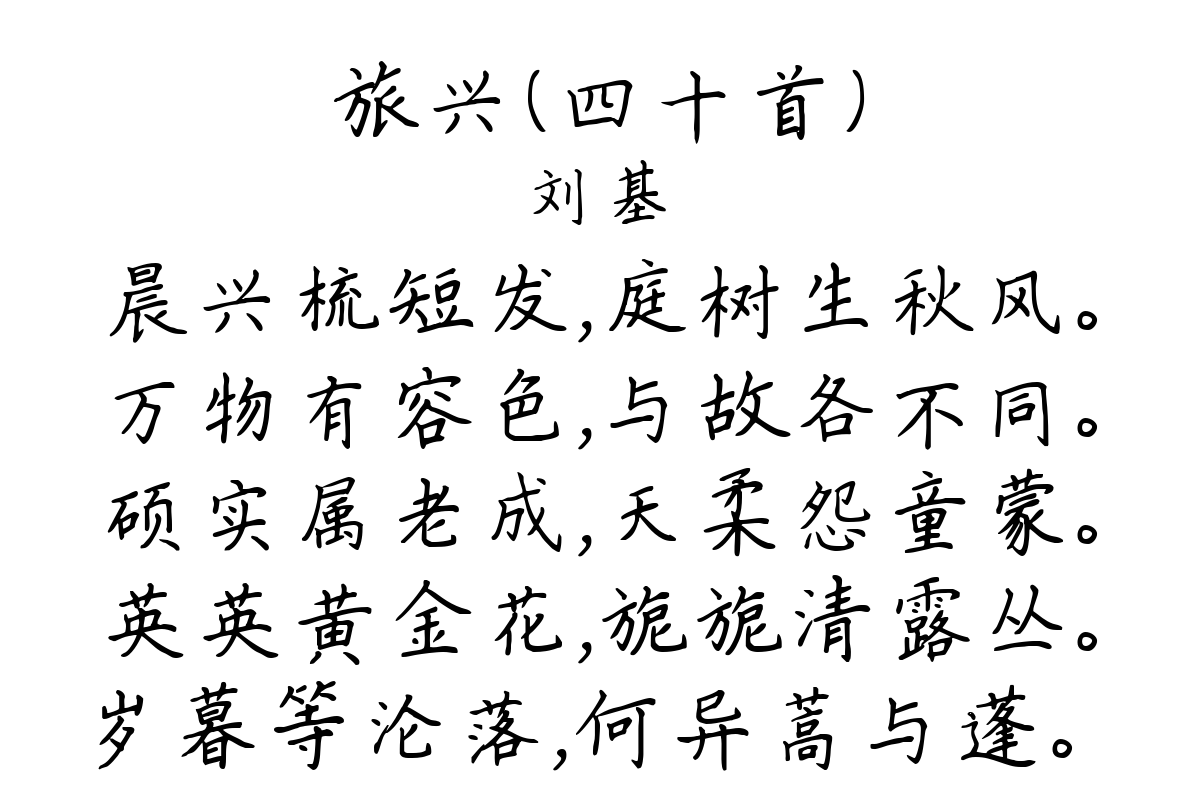 旅兴(四十首)
刘基
晨兴梳短发,庭树生秋风。
万物有容色,与故各不同。
硕实属老成,夭柔怨童蒙。
英英黄金花,旎旎清露丛。
岁暮等沦落,何异蒿与蓬。